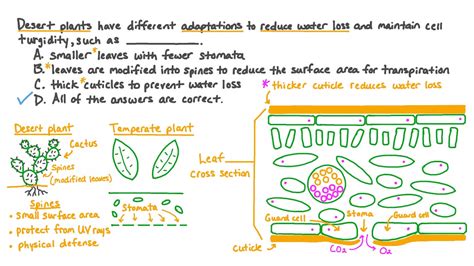 Desert plants have different adaptations to reduce water loss and maintain cell
turgidity, such as ___________.
A. smaller *leaves with fewer stomata
B. *leaves are modified into spines to reduce the surface area for transpiration
C. thick *cuticles to prevent water loss
* thicker cuticle reduces water loss
✓ D. All of the answers are correct.
Desert plant
Temperate plant
Cactus
Spines
(modified leaves)
Stomata
Spines
• small surface area
• protect from UV rays
• physical defense
Leaf
cross section
Guard cell
Stoma
Guard cell
Cuticle
CO2
O2